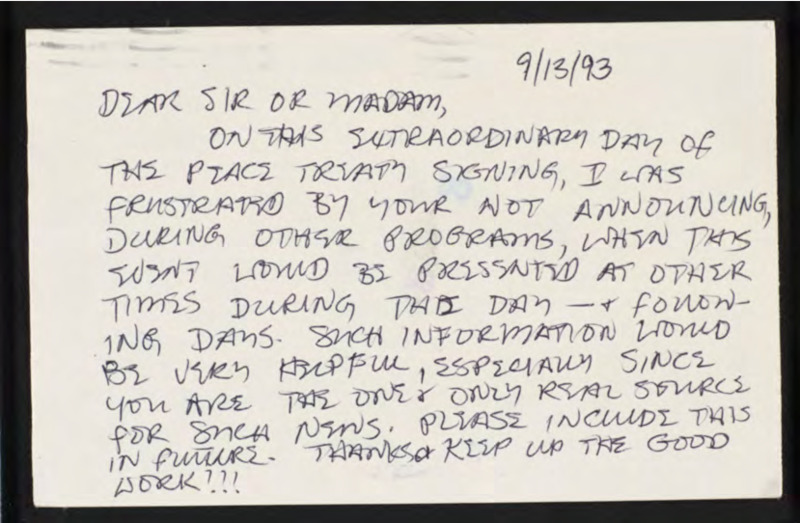 9/13/93
DEAR SIR OR MADAM,
ON THIS EXTRAORDINARY DAY OF
THE PEACE TREATY SIGNING, I WAS
FRUSTRATED BY YOUR NOT ANNOUNCING,
DURING OTHER PROGRAMS, WHEN THIS
EVENT WOULD BE PRESENTED AT OTHER
TIMES DURING THE DAY — & FOLLOW-
ING DAYS. SUCH INFORMATION WOULD
BE VERY HELPFUL, ESPECIALLY SINCE
YOU ARE THE ONE & ONLY REAL SOURCE
FOR SUCH NEWS. PLEASE INCLUDE THIS
IN FUTURE. THANKS & KEEP UP THE GOOD
WORK!!!